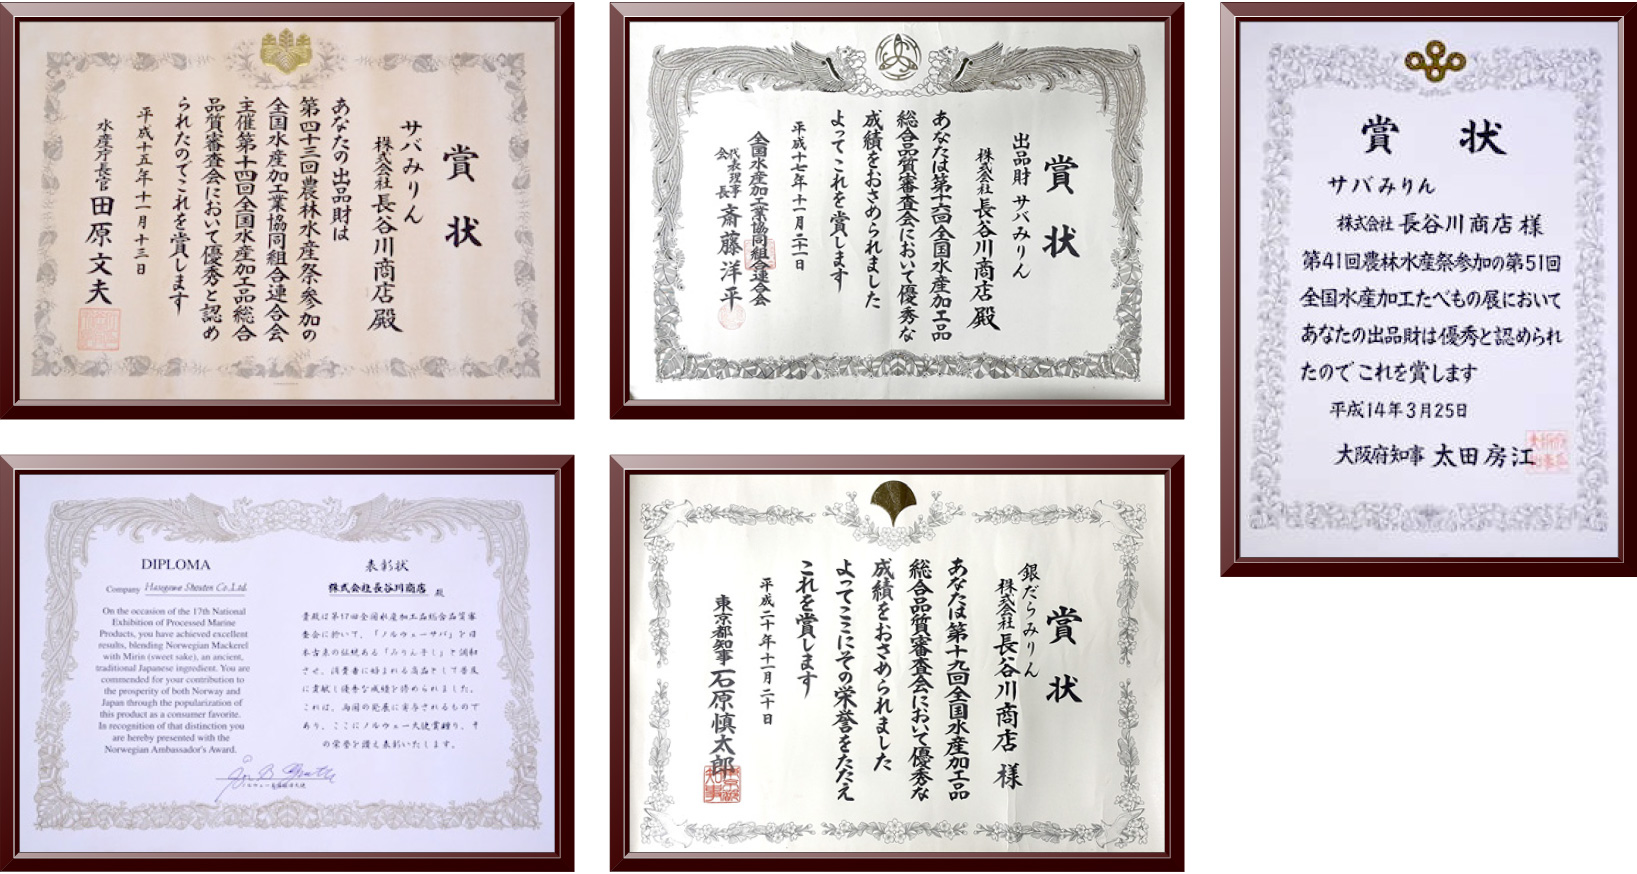 賞状
サバみりん
株式会社 長谷川商店 殿
あなたの出品財は
第四十三回農林水産祭参加の
全国水産加工業協同組合連合会
主催第十四回全国水産加工品総合
品質審査会において優秀と認め
られたのでこれを賞します
平成十五年十一月十三日
水産庁長官 田原文夫
賞状
出品財 サバみりん
株式会社 長谷川商店 殿
あなたは第十六回全国水産加工品
総合品質審査会において優秀な
成績をおさめられました
よってこれを賞します
平成十七年十一月二十一日
全国水産加工業協同組合連合会
代表理事会長 斎藤洋平
賞状
サバみりん
株式会社 長谷川商店 様
第41回農林水産祭参加の第51回
全国水産加工たべもの展において
あなたの出品財は優秀と認められ
たのでこれを賞します
平成14年3月25日
大阪府知事 太田房江
DIPLOMA
Company Hasegawa Shouten Co.,Ltd.
On the occasion of the 17th National
Exhibition of Processed Marine
Products, you have achieved excellent
results, blending Norwegian Mackerel
with Mirin (sweet sake), an ancient,
traditional Japanese ingredient. You are
commended for your contribution to
the prosperity of both Norway and
Japan through the popularization of
this product as a consumer favorite.
In recognition of that distinction you
are hereby presented with the
Norwegian Ambassador's Award.
表彰状
株式会社長谷川商店 殿
貴殿は第17回全国水産加工品総合品質審
査会に於いて、「ノルウェーサバ」を日
本古来の伝統ある「みりん干し」と調和
させ、消費者に好まれる商品として普及
に貢献し優秀な成績を修められました。
これは、両国の発展に寄与されるもので
あり、ここにノルウェー大使賞を贈り、そ
の栄誉を讃え表彰いたします。
賞状
銀だらみりん
株式会社 長谷川商店 様
あなたは第十九回全国水産加工品
総合品質審査会において優秀な
成績をおさめられました
よってここにその栄誉をたたえ
これを賞します
平成二十年十一月二十日
東京都知事 石原慎太郎